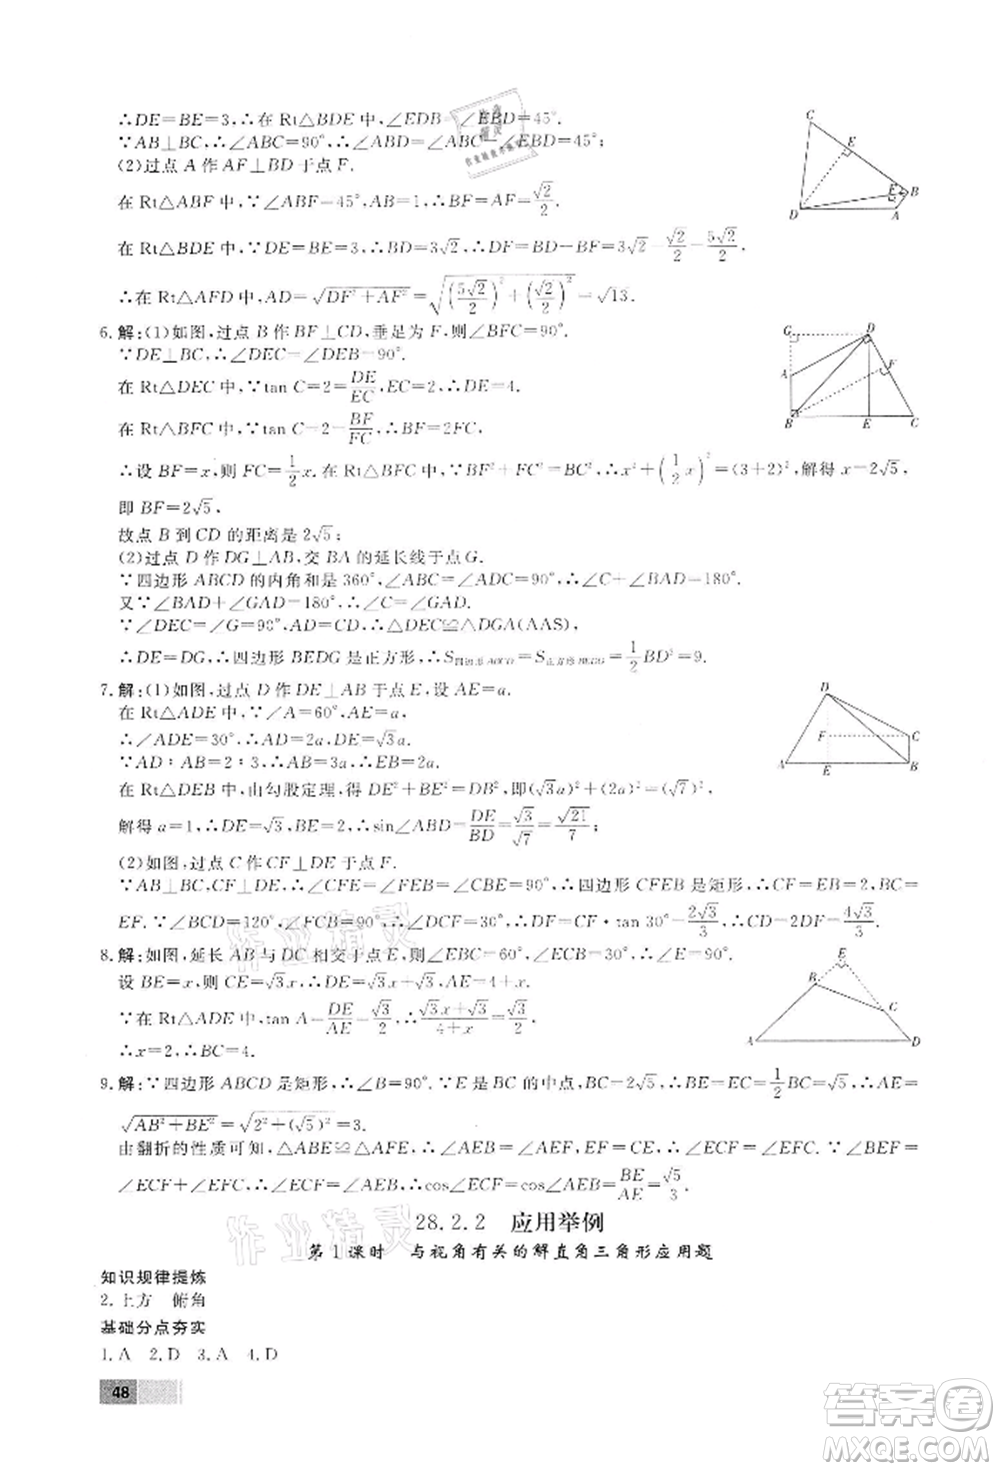 ∴DE=BE=3,∴在 Rt△BDE 中,∠EDB=∠EBD=45°.
∵AB⊥BC,∴∠ABC=90°,∴∠ABD=∠ABC-∠EBD=45°;
(2)过点 A 作 AF⊥BD于点 F.
在 Rt△ABF 中,∵∠ABF=45°,AB=1,∴BF=AF=√2/2.
在 Rt△BDE 中,∵DE=BE=3,∴BD=3√2,∴DF=BD-BF=3√2-√2/2=5√2/2.
∴在 Rt△AFD 中,AD=√(DF²+AF²)=√((5√2/2)²+(√2/2)²)=√13.
6.解:(1)如图,过点 B 作 BF⊥CD,垂足为 F,则∠BFC=90°.
∵DE⊥BC,∴∠DEC=∠DEB=90°.
在 Rt△DEC 中,∵tan C=2=DE/EC,∴DE=4.
在 Rt△BFC 中,∵tan C=2=BF/FC,
∴设 BF=x,则 FC=1/2x.在 Rt△BFC 中,∵BF²+FC²=BC²,∴x²+(1/2x)²=(3+2)²,解得 x=2√5,
即 BF=2√5.
故点 B 到 CD 的距离是 2√5;
(2)过点 D 作 DG⊥AB,交 BA的延长线于点G.
∵四边形 ABCD 的内角和是 360°,∠ABC=∠ADC=90°,∴∠C+∠BAD=180°.
又∵∠BAD+∠GAD=180°,∴∠C=∠GAD.
∵∠DEC=∠G=90°,AD=CD,∴△DEC≌△DGA(AAS),
∴DE=DG,∴四边形 BEDG 是正方形,∴S四边形ABCD=S正方形BEDG=1/2BD²=9.
7.解:(1)如图,过点 D 作 DE⊥AB于点 E,设 AE=a.
在 Rt△ADE 中,∵∠A=60°,AE=a,
∴∠ADE=30°,∴AD=2a,DE=√3a.
∵AD∶AB=2∶3,∴AB=3a,∴BE=2a.
在 Rt△DEB 中,由勾股定理,得 DE²+BE²=BD²,即(√3a)²+(2a)²=(√7)²,
解得 a=1,∴DE=√3,BE=2,∴sin∠ABD=DE/BD=√3/√7=√21/7;
(2)如图,过点 C 作 CF⊥DE于点 F.
∵AB⊥BC,∴∠CFE=∠FEB=∠CBE=90°,∴四边形 CFEB 是矩形,∴CF=EB=2,BC=
EF.∵∠BCD=120°,∠FCB=90°,∴∠DCF=30°,∴DF=CF·tan 30°=2√3/3,∴CD=2DF=4√3/3.
8.解:如图,延长 AB 与 DC 相交于点 E,∴∠EBC=60°,∠BCE=30°.
设 BE=x,则 CE=√3x,BC=2x,∴DE=√3x+√3,AE=4+x.
∵在 Rt△ADE 中,tan A=DE/AE=√3/2,∴(√3x+√3)/(4+x)=√3/2,
∴x=2,∴BC=4.
9.解:∵四边形 ABCD 是矩形,∴∠B=90°.∵E 是 BC 的中点,BC=2√5,∴BE=CE=1/2BC=√5,∴AE=
√(AB²+BE²)=√(2²+(√5)²)=3.
由翻折的性质可知,△ABE≌△AFE,∴∠AEB=∠AEF,EF=CE,∴∠ECF=∠EFC.∵∠BEF=
∠ECF+∠EFC,∴∠ECF=∠AEB,∴cos∠ECF=cos∠AEB=BE/AE=√5/3.
28.2.2 应用举例
第 1 课时 与视角有关的解直角三角形应用题
知识规律提炼
2.上方 俯角
基础分点夯实
1.A 2.D 3.A 4.D
48
作业精灵
作业精灵
答案圈
MXQE.COM